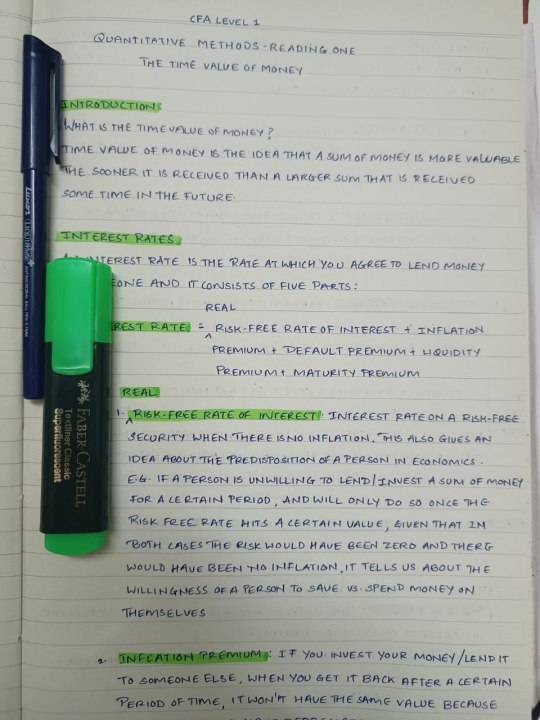 CFA LEVEL 1
QUANTITATIVE METHODS - READING ONE
THE TIME VALUE OF MONEY
INTRODUCTION
WHAT IS THE TIME VALUE OF MONEY?
TIME VALUE OF MONEY IS THE IDEA THAT A SUM OF MONEY IS MORE VALUABLE
THE SOONER IT IS RECEIVED THAN A LARGER SUM THAT IS RECEIVED
SOME TIME IN THE FUTURE.
INTEREST RATES
INTEREST RATE IS THE RATE AT WHICH YOU AGREE TO LEND MONEY
EONE AND IT CONSISTS OF FIVE PARTS:
REAL
REST RATE = ^ RISK-FREE RATE OF INTEREST + INFLATION
PREMIUM + DEFAULT PREMIUM + LIQUIDITY
PREMIUM + MATURITY PREMIUM
REAL
1. ^ RISK-FREE RATE OF INTEREST: INTEREST RATE ON A RISK-FREE
SECURITY WHEN THERE IS NO INFLATION. THIS ALSO GIVES AN
IDEA ABOUT THE PREDISPOSITION OF A PERSON IN ECONOMICS.
E.G. IF A PERSON IS UNWILLING TO LEND/INVEST A SUM OF MONEY
FOR A CERTAIN PERIOD, AND WILL ONLY DO SO ONCE THE
RISK FREE RATE HITS A CERTAIN VALUE, GIVEN THAT IN
BOTH CASES THE RISK WOULD HAVE BEEN ZERO AND THERE
WOULD HAVE BEEN NO INFLATION, IT TELLS US ABOUT THE
WILLINGNESS OF A PERSON TO SAVE VS. SPEND MONEY ON
THEMSELVES
2. INFLATION PREMIUM: IF YOU INVEST YOUR MONEY/LEND IT
TO SOMEONE ELSE, WHEN YOU GET IT BACK AFTER A CERTAIN
PERIOD OF TIME, IT WON'T HAVE THE SAME VALUE BECAUSE
Luxor
FABER-CASTELL
Textliner Classic
Superfluorescent